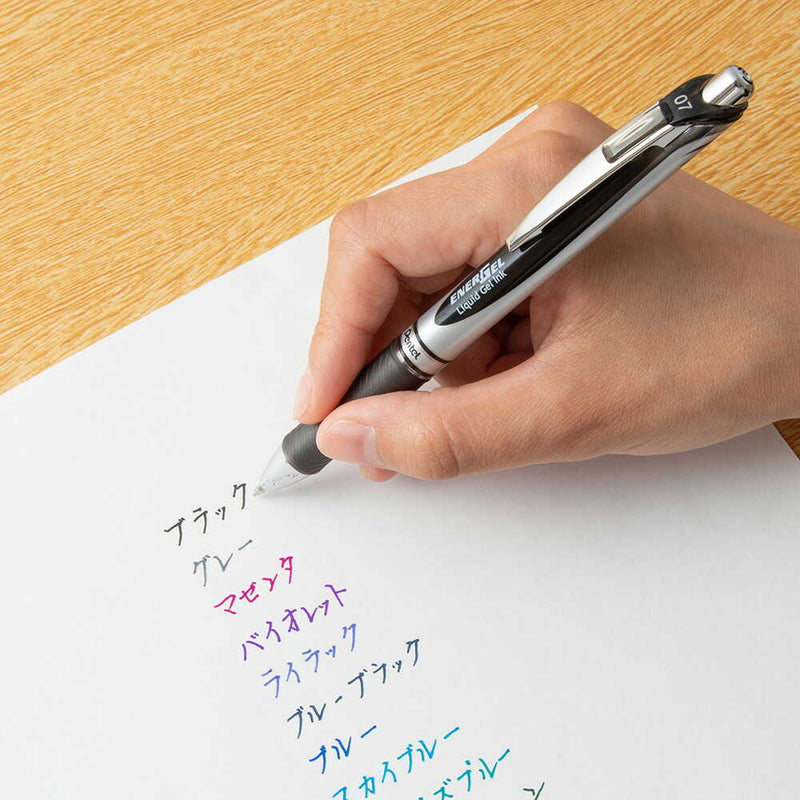 07
ENERGEL
Liquid Gel Ink
Pentel
ブラック
グレー
マゼンタ
バイオレット
ライラック
ブルーブラック
ブルー
スカイブルー
ズブルー